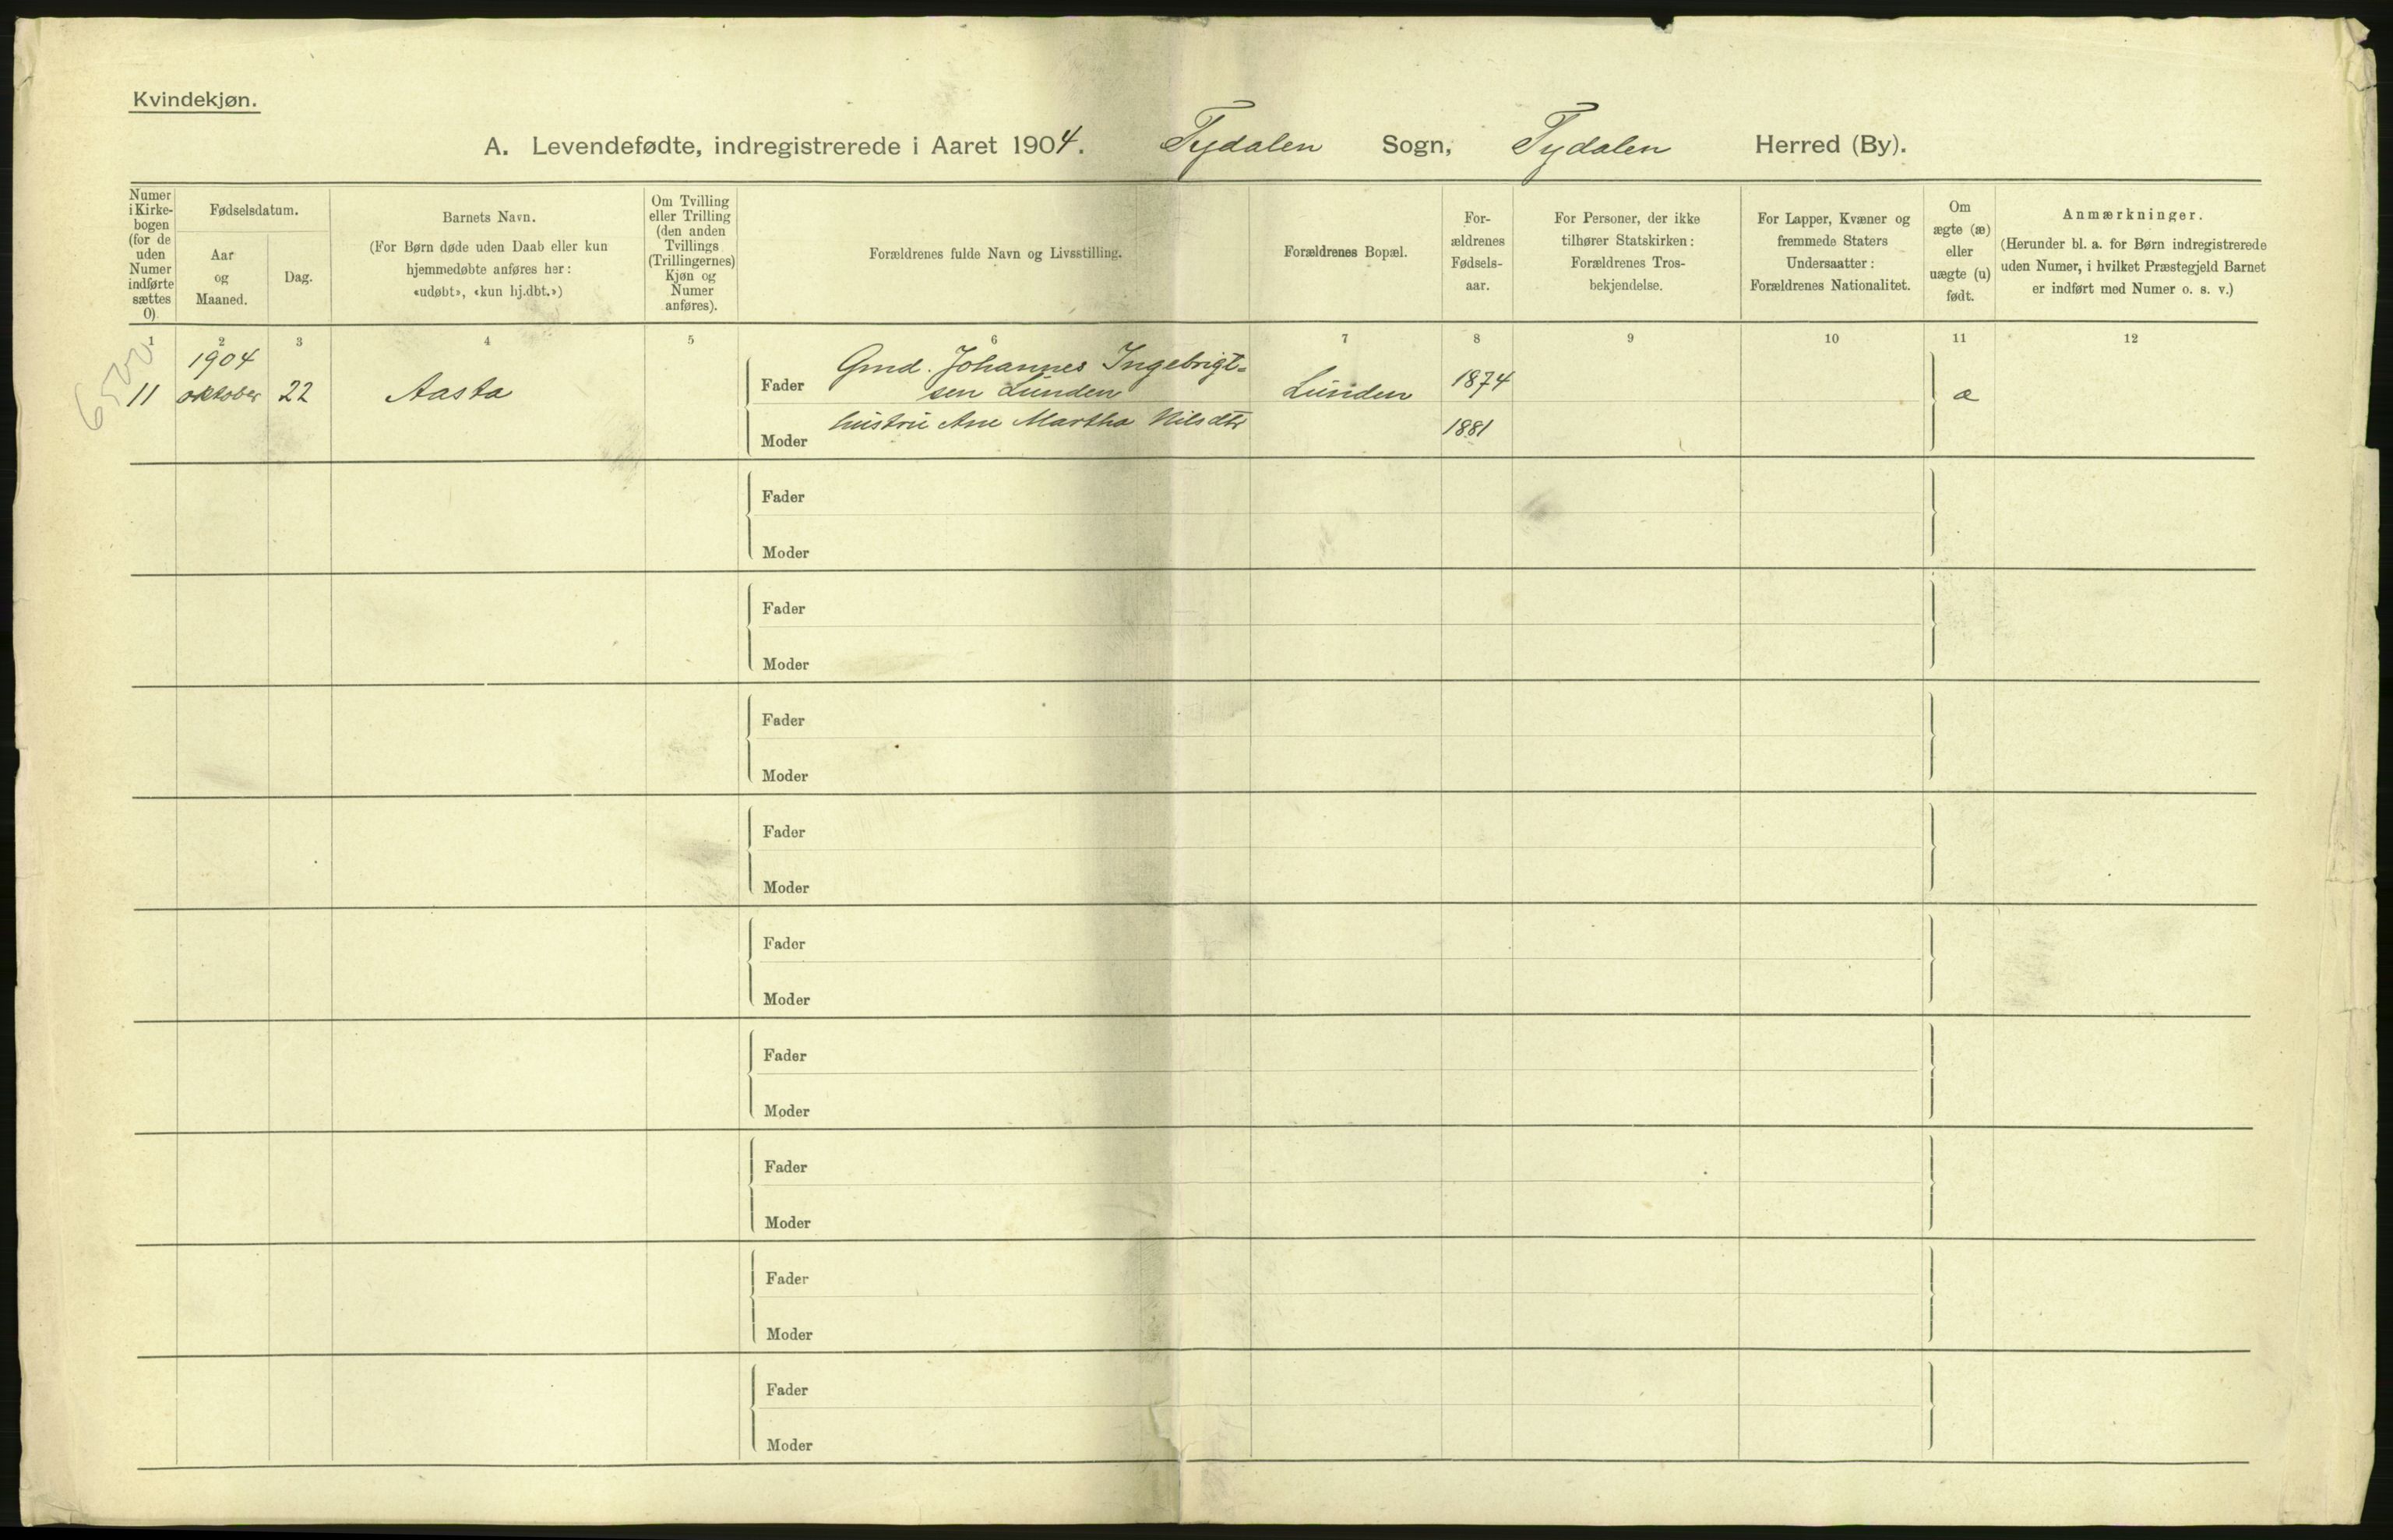 Kvindekjøn.
A. Levendefødte, indregistrerede i Aaret 1904. Tydalen Sogn, Tydalen Herred (By).
Numer
i Kirke-
bogen
(for de
uden
Numer
indførte
sættes
0)
Fødselsdatum.
Aar
og
Maaned.
Dag.
Barnets Navn.
(For Børn døde uden Daab eller kun
hjemmedøbte anføres her:
«udøbt», «kun hj.dbt.»)
Om Tvilling
eller Trilling
(den anden
Tvillings
(Trillingernes)
Kjøn og
Numer
anføres).
Forældrenes fulde Navn og Livsstilling.
Forældrenes Bopæl.
For-
ældrenes
Fødsels-
aar.
For Personer, der ikke
tilhører Statskirken:
Forældrenes Tros-
bekjendelse.
For Lapper, Kvæner og
fremmede Staters
Undersaatter:
Forældrenes Nationalitet.
Om
ægte (æ)
eller
uægte (u)
født.
Anmærkninger.
(Herunder bl. a. for Børn indregistrerede
uden Numer, i hvilket Præstegjeld Barnet
er indført med Numer o. s. v.)
1 2 3 4 5 6 7 8 9 10 11 12
1904
11 oktober 22 Aasta
Fader Gmd. Johannes Ingebrigt=
sen Lunden Lunden 1874 æ
Moder hustru Ane Martha Nilsdtr 1881
Fader
Moder
Fader
Moder
Fader
Moder
Fader
Moder
Fader
Moder
Fader
Moder
Fader
Moder
Fader
Moder
Fader
Moder